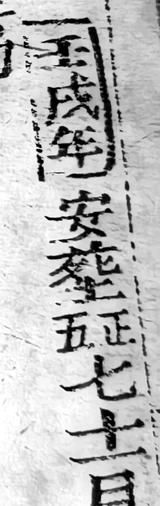 壬戌年安塟正五七十一月